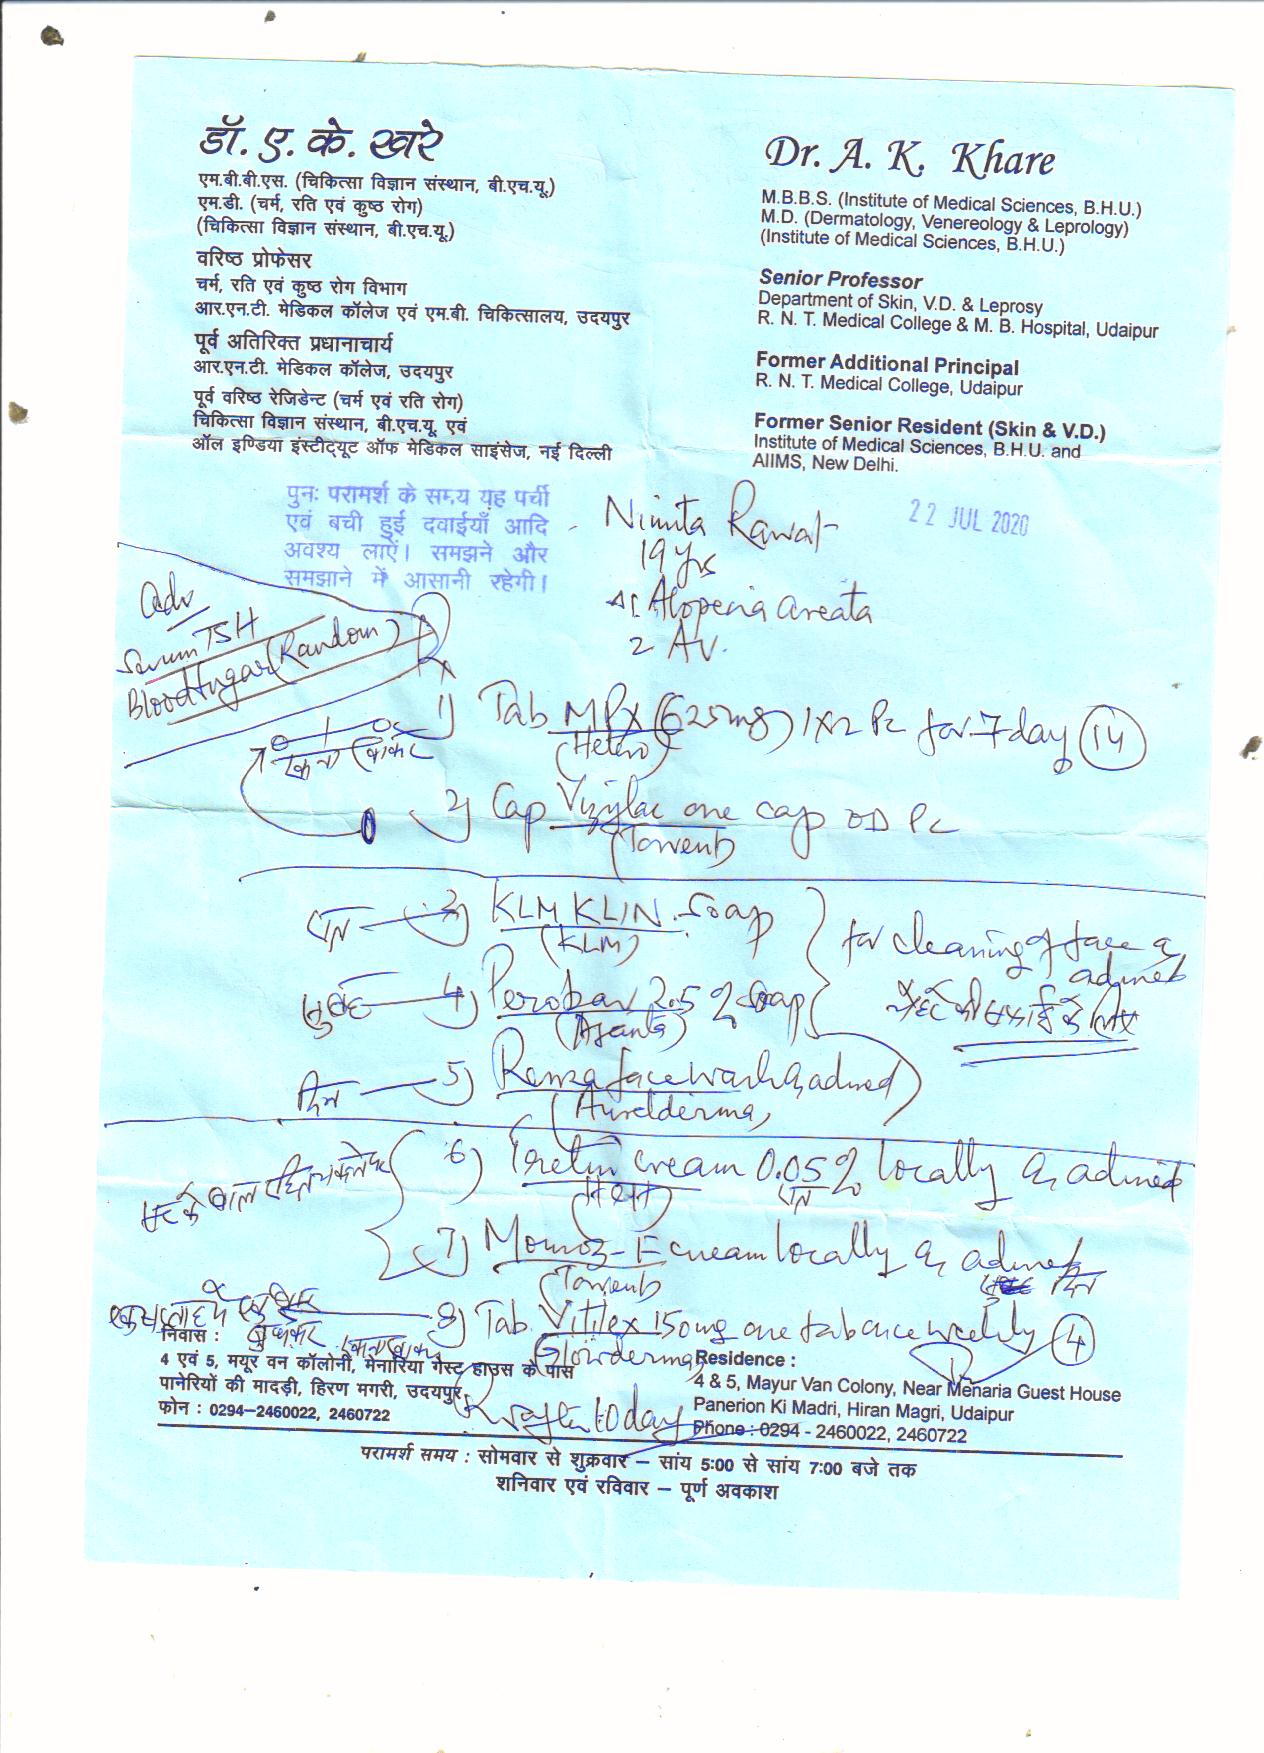 डॉ. ए. के. खरे
एम.बी.बी.एस. (चिकित्सा विज्ञान संस्थान, बी.एच.यू.)
एम.डी. (चर्म, रति एवं कुष्ठ रोग)
(चिकित्सा विज्ञान संस्थान, बी.एच.यू.)
वरिष्ठ प्रोफेसर
चर्म, रति एवं कुष्ठ रोग विभाग
आर.एन.टी. मेडिकल कॉलेज एवं एम.बी. चिकित्सालय, उदयपुर
पूर्व अतिरिक्त प्रधानाचार्य
आर.एन.टी. मेडिकल कॉलेज, उदयपुर
पूर्व वरिष्ठ रेजिडेन्ट (चर्म एवं रति रोग)
चिकित्सा विज्ञान संस्थान, बी.एच.यू. एवं
ऑल इण्डिया इंस्टीट्यूट ऑफ मेडिकल साइंसेज, नई दिल्ली
Dr. A. K. Khare
M.B.B.S. (Institute of Medical Sciences, B.H.U.)
M.D. (Dermatology, Venereology & Leprology)
(Institute of Medical Sciences, B.H.U.)
Senior Professor
Department of Skin, V.D. & Leprosy
R. N. T. Medical College & M. B. Hospital, Udaipur
Former Additional Principal
R. N. T. Medical College, Udaipur
Former Senior Resident (Skin & V.D.)
Institute of Medical Sciences, B.H.U. and
AIIMS, New Delhi.
पुनः परामर्श के समय यह पर्ची
एवं बची हुई दवाईयाँ आदि
अवश्य लाऐं। समझने और
समझाने में आसानी रहेगी।
22 JUL 2020
Nimita Rawat
19 yrs
Alopecia areata
2 AV.
Adv
Serum TSH
Blood Sugar (Random)
Rx
1) Tab MPX (625mg) 1x2 Pc for 7 day (14)
(Hetero)
2) Cap Vizylac one cap OD Pc
(Torrent)
3) KLM KLIN soap
(KLM)
for cleaning of face
सुबह 4) Perobar 2.5% soap
(Ajanta)
चेहरे की सफाई के लिए
दिन 5) face wash
6) Tretin cream 0.05% locally
7) Momoz-E cream locally
(Torrent)
दिन
8) Tab. Vitilex 150mg one tab once weekly (4)
R after 10 day
निवास :
4 एवं 5, मयूर वन कॉलोनी, मेनारिया गेस्ट हाउस के पास
पानेरियों की मादड़ी, हिरण मगरी, उदयपुर
फोन : 0294-2460022, 2460722
Residence :
4 & 5, Mayur Van Colony, Near Menaria Guest House
Panerion Ki Madri, Hiran Magri, Udaipur
Phone : 0294 - 2460022, 2460722
परामर्श समय : सोमवार से शुक्रवार – सांय 5:00 से सांय 7:00 बजे तक
शनिवार एवं रविवार – पूर्ण अवकाश